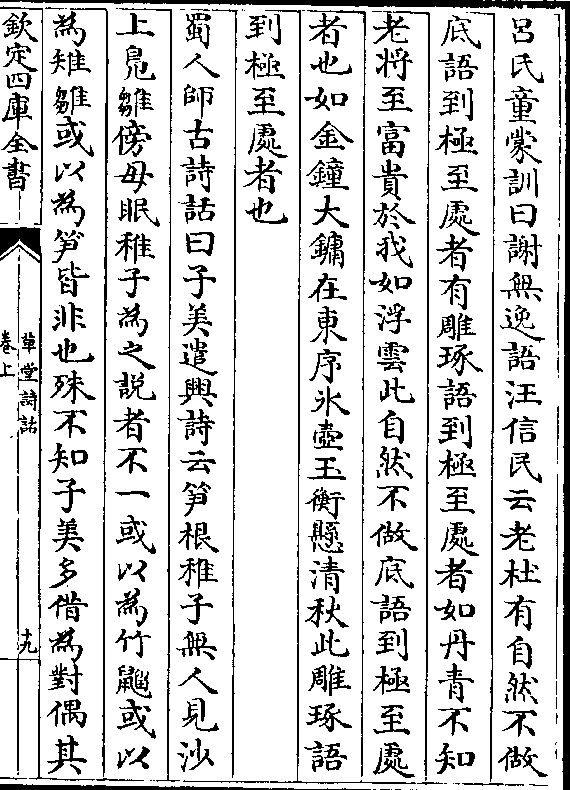 呂氏童蒙訓曰謝無逸語汪信民云老杜有自然不做
底語到極至處者有雕琢語到極至處者如丹青不知
老將至富貴於我如浮雲此自然不做底語到極至處
者也如金鐘大鏞在東序氷壺玉衡懸清秋此雕琢語
到極至處者也
蜀人師古詩話曰子美遣興詩云笋根稚子無人見沙
上鳧雛傍母眠稚子為之説者不一或以為竹䶉或以
為雉雛或以為笋皆非也殊不知子美多借為對偶其
欽定四庫全書
草堂詩話
卷上
十九